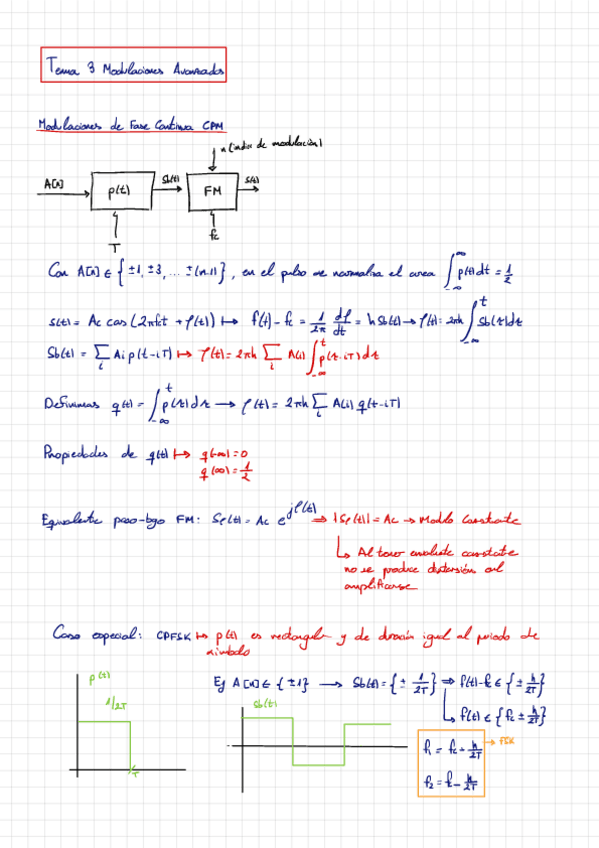 Tema 3 Modulaciones Avanzadas
Modulaciones de Fase Continua CPM
h (índice de modulación)
A[n] p(t) Sb(t) FM s(t)
T fc
Con A[n] ∈ {±1, ±3, ... ±(M-1)}, en el pulso se normaliza el area ∫_{-∞}^{∞} p(t)dt = 1/2
s(t) = Ac cos(2πfct + φ(t)) ↦ f(t) - fc = 1/2π dφ/dt = h Sb(t) → φ(t) = 2πh ∫_{-∞}^{t} Sb(τ)dτ
Sb(t) = Σ_i Ai p(t-iT) ↦ φ(t) = 2πh Σ_i A(i) ∫_{-∞}^{t} p(τ-iT)dτ
Definimos q(t) = ∫_{-∞}^{t} p(τ)dτ → φ(t) = 2πh Σ_i A(i) q(t-iT)
Propiedades de q(t) ↦ q(-∞) = 0
q(∞) = 1/2
Equivalente paso-bajo FM: Se(t) = Ac e^{jφ(t)} ⇒ |Se(t)| = Ac → Modulo constante
↳ Al tener envolvente constante
no se produce distorsión al
amplificarse
Caso especial: CPFSK ↦ p(t) es rectangular y de duración igual al periodo de
símbolo
p(t)
1/2T
T
Ej A[n] ∈ {±1} → Sb(t) = {± 1/2T} ⇒ f(t)-fc ∈ {± h/2T}
Sb(t)
↳ f(t) ∈ {fc ± h/2T}
f1 = fc + h/2T → FSK
f2 = fc - h/2T